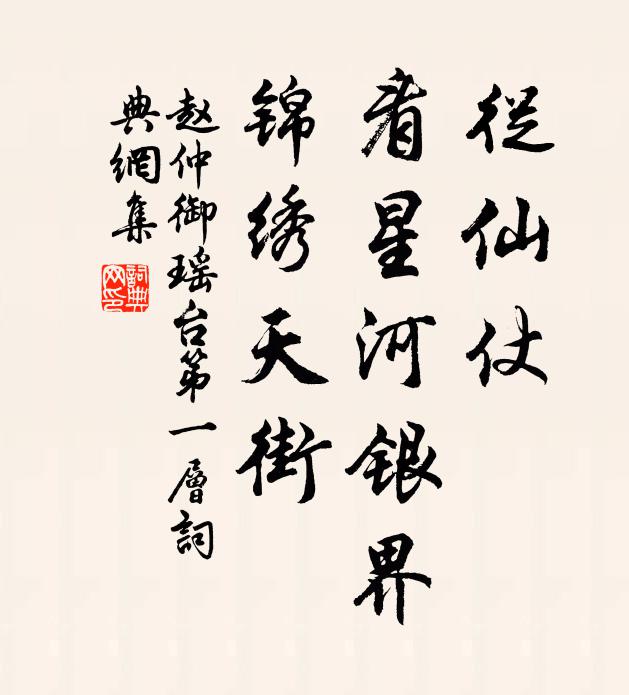 從仙仗
看星河银界
锦绣天街
赵仲御瑶台第一層詞
典網集
詞典網印